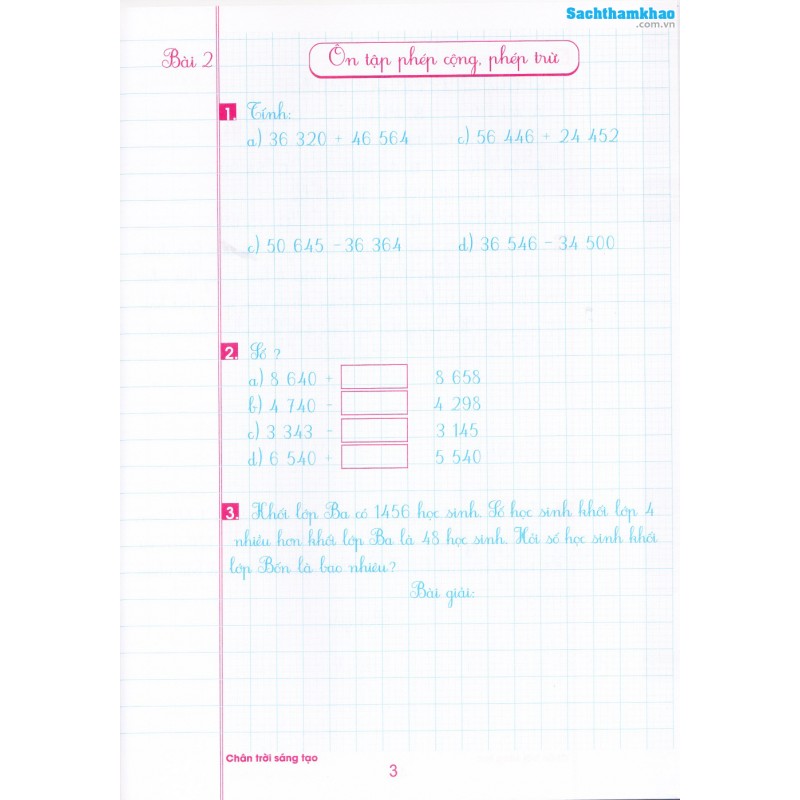 Sachthamkhao
.com.vn
Bài 2
Ôn tập phép cộng, phép trừ
1. Tính:
a) 36 320 + 46 564 c) 56 446 + 24 452
c) 50 645 - 36 364 d) 36 546 - 34 500
2. Số ?
a) 8 640 + 8 658
b) 4 740 - 4 298
c) 3 343 - 3 145
d) 6 540 + 5 540
3. Khối lớp Ba có 1456 học sinh. Số học sinh khối lớp 4
nhiều hơn khối lớp Ba là 48 học sinh. Hỏi số học sinh khối
lớp Bốn là bao nhiêu?
Bài giải:
Chân trời sáng tạo
3